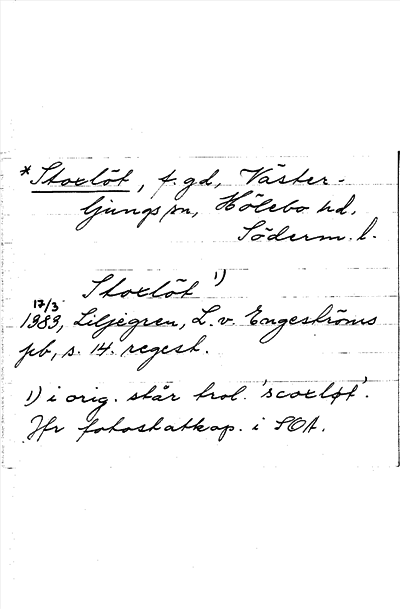 * Stoxlöt, f. gd, Väster-
ljungs sn, Hölebo hd,
Söderm. l.
Stoxlöt 1)
17/3
1383, Liljegren, L. v. Engeströms
pb, s. 14. regest.
1) i orig. står trol. 'scoxløt'.
Jfr fotostatkop. i SOA.